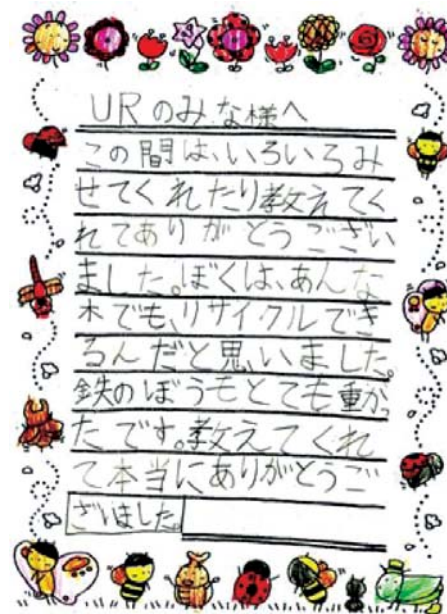 URのみな様へ
この間は、いろいろみ
せてくれたり教えてく
れてありがとうござい
ました。ぼくは、あんな
木でも、リサイクルでき
るんだと思いました。
鉄のぼうもとても重かっ
たです。教えてくれ
て本当にありがとうご
ざいました。